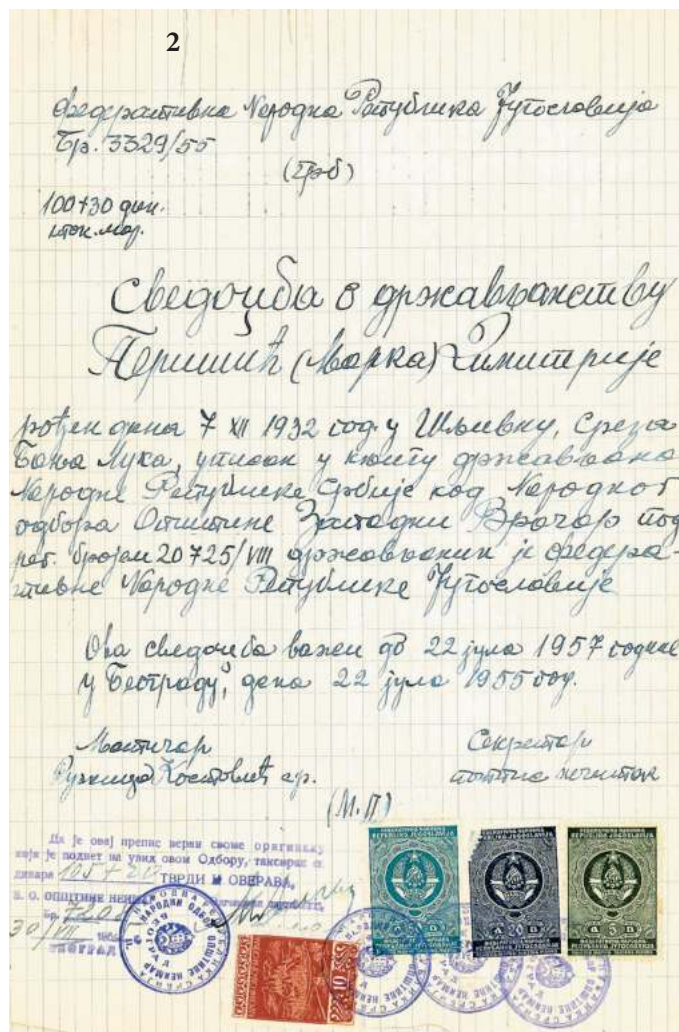 2
Федеративна Народна Република Југославија
Бр. 3329/55
(Грб)
100+30 дин.
Сведоџба о држављанству
Перишић (Марка) Димитрије
рођен дана 7 XII 1932 год. у Шљивну, Среза
Бања Лука, уписан у књигу држављана
Народне Републике Србије код Народног
одбора Општине Западни Врачар под
рег. бројем 20725/VIII држављанин је Федера-
тивне Народне Републике Југославије
Ова сведоџба важи до 22 јула 1957 године
у Београду, дана 22 јула 1955 год.
Матичар Секретар
Ружица Костовић с.р. потпис нечитак
(М.П.)
Да је овај препис веран своме оригиналу
који је поднет на увид овом Одбору, таксиран са
динара ТВРДИ И ОВЕРАВА
ОПШТИНЕ НЕИМАР
30/VIII
БЕОГРАД
10
ФЕДЕРАТИВНА НАРОДНА
REPUBLIKA JUGOSLAVIJA
Д 20 D
Д 5 D